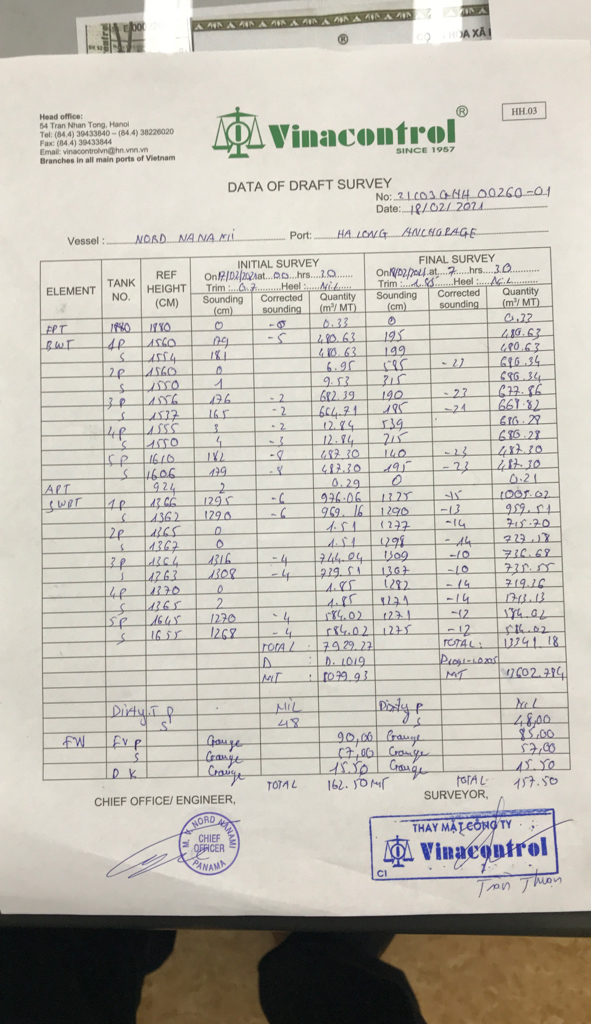 HOA XÃ
®
Head office:
54 Tran Nhan Tong, Hanoi
Tel: (84.4) 39433840 – (84.4) 38226020
Fax: (84.4) 39433844
Email: vinacontrolvn@hn.vnn.vn
Branches in all main ports of Vietnam
Vinacontrol ®
SINCE 1957
HH.03
DATA OF DRAFT SURVEY
No: 21C03GHH00260-01
Date: 18/02/2021
Vessel: NORD NANAMI Port: HA LONG ANCHORAGE
ELEMENT TANK NO. REF HEIGHT (CM) INITIAL SURVEY FINAL SURVEY
On 17/02/2021 at 00 hrs 30 On 18/02/2021 at 7 hrs 30
Trim: 0.7 Heel: NiL Trim: 1.85 Heel: NiL
Sounding (cm) Corrected sounding Quantity (m³/ MT) Sounding (cm) Corrected sounding Quantity (m³/ MT)
FPT 1880 1880 0 -0 0.33 0 0.33
BWT 1P 1560 179 -5 480.63 195 480.63
S 1554 181 480.63 199 480.63
2P 1560 0 6.95 585 -23 686.34
S 1550 1 9.53 315 686.34
3P 1556 176 -2 682.39 190 -23 677.86
S 1537 165 -2 664.71 185 -21 668.82
4P 1555 3 -2 12.84 539 686.28
S 1550 4 -3 12.84 215 686.28
5P 1610 182 -8 487.30 140 -23 487.30
S 1606 179 -8 487.30 195 -23 487.30
APT 924 2 0.29 0 0.21
SWBT 1P 1366 1295 -6 976.06 1325 -15 1005.02
S 1362 1290 -6 969.16 1290 -13 959.51
2P 1365 0 1.51 1277 -14 715.70
S 1367 0 1.51 1298 -14 727.18
3P 1364 1316 -4 744.04 1309 -10 736.68
S 1363 1308 -4 739.51 1307 -10 735.55
4P 1370 0 1.85 1282 -14 719.26
S 1365 2 1.85 1271 -14 1713.13
5P 1645 1270 -4 584.02 1271 -12 584.02
S 1655 1268 -4 584.02 1275 -12 584.02
TOTAL: 7929.27 TOTAL: 13341.18
D : D.1019
MT 8079.93 MT 13602.784
Dirty T P NiL Dirty P NiL
S 48 S 48,00
FW FW P Gauge 90,00 Gauge 85,00
S Gauge 57,00 Gauge 57,00
DK Gauge 15.50 Gauge 15.50
TOTAL 162.50 MT TOTAL 157.50
CHIEF OFFICE/ ENGINEER, SURVEYOR,
M. V. NORD NANAMI
CHIEF
OFFICER
PANAMA
THAY MẶT CÔNG TY
Vinacontrol
C1
Trần Thuận